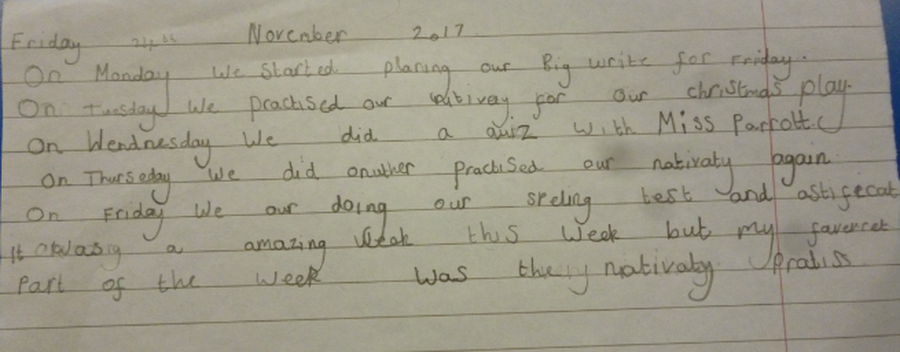 Friday 24th November 2017
On Monday We Started planing our Big write for Friday.
On tuesday We practised our nativay for our christmas play.
On Wendnesday We did a quiz with Miss Parrott.
On Thurseday We did onuther practised our nativaty again
On Friday We our doing our speling test and astifecat
it a amazing this Week but my favercet
Part of the Week Was the nativaty Pratiss